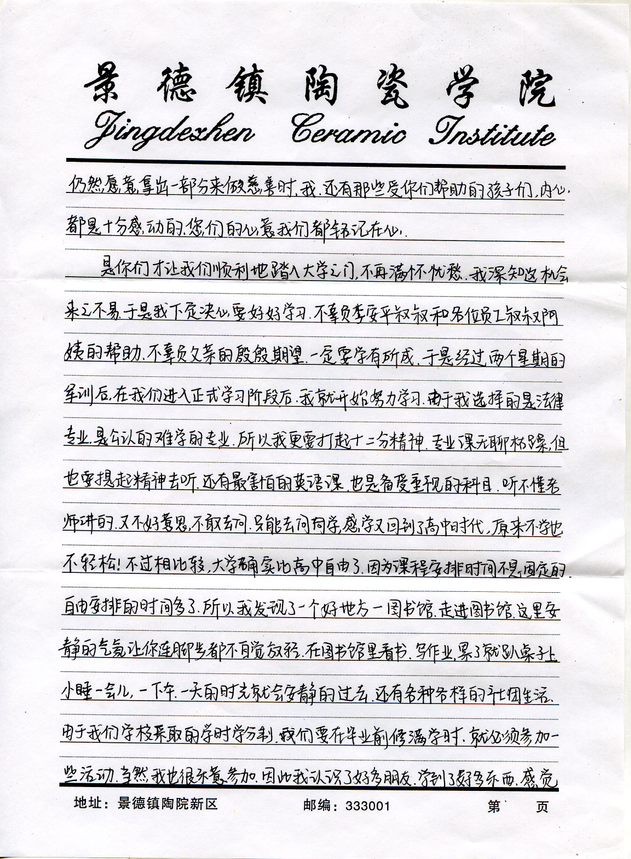 景德镇陶瓷学院
Jingdezhen Ceramic Institute
仍然愿意拿出一部分来做慈善时,我,还有那些受你们帮助的孩子们,内心
都是十分感动的,您们的心意我们都牢记在心.
是你们才让我们顺利地踏入大学之门,不再满怀忧愁.我深知这机会
来之不易,于是我下定决心要好好学习.不辜负李安平叔叔和各位员工叔叔阿
姨的帮助,不辜负父亲的殷殷期望,一定要学有所成,于是经过两个星期的
军训后,在我们进入正式学习阶段后,我就开始努力学习.由于我选择的是法律
专业,是公认的难学的专业,所以我更要打起十二分精神,专业课无聊枯燥,但
也要提起精神去听,还有最害怕的英语课,也是备受重视的科目,听不懂老
师讲的,又不好意思,不敢去问,只能去问同学,感学又回到了高中时代,原来大学也
不轻松!不过相比较,大学确实比高中自由了,因为课程安排时间不是固定的,
自由安排的时间多了,所以我发现了一个好地方—图书馆.走进图书馆,这里安
静的气氛让你连脚步都不自觉放轻.在图书馆里看书,写作业,累了就趴桌子上
小睡一会儿,一下午.一天的时光就会安静的过去.还有各种各样的社团生活.
由于我们学校采取的学时学分制,我们要在毕业前修满学时,就必须参加一
些活动,当然,我也很乐意参加.因此我认识了好多朋友,学到了好多东西,感觉
地址:景德镇陶院新区 邮编:333001 第 页